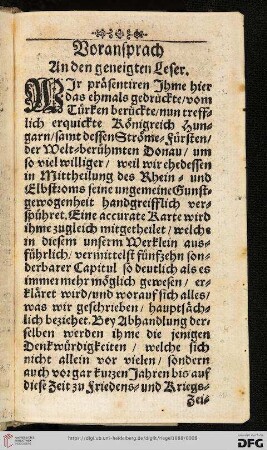 Voransprach
An den geneigten Leser.
WIr präsentiren Ihme hier
das ehmals gedrückte / vom
Türken berückte / nun treff-
lich erquickte Königreich Hun-
garn / samt dessen Ströme-Fürsten /
der Welt-berühmten Donau / um
so viel williger / weil wir ehedessen
in Mittheilung des Rhein- und
Elbstroms seine ungemeine Gunst-
gewogenheit handgreifflich ver-
spühret. Eine accurate Karte wird
ihme zugleich mitgetheilet / welche
in diesem unserm Werklein aus-
führlich / vermittelst fünfzehn son-
derbarer Capitul so deutlich als es
immer mehr möglich gewesen / er-
kläret wird / und worauf sich alles /
was wir geschrieben / hauptsäch-
lich beziehet. Bey Abhandlung der-
selben werden ihme die jenigen
Denkwürdigkeiten / welche sich
nicht allein vor vielen / sondern
auch vor gar kurzen Jahren bis auf
diese Zeit zu Friedens- und Kriegs-
Zei-
UNIVERSITÄTS-
BIBLIOTHEK
HEIDELBERG
Gefördert durch die
DFG